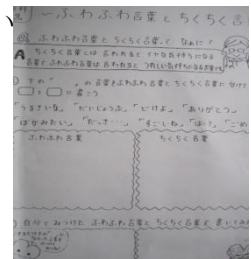 ふわふわ言葉とちくちく言葉
ふわふわ言葉とちくちく言葉って なあに?
A ちくちく言葉とは 言われると イヤな気持ちになる
言葉 ふわふわ言葉は 言われると うれしい気持ちになる言葉
下の の言葉をふわふわ言葉とちくちく言葉に分けて
に書こう
「うるさいな」「だいじょうぶ」「どけよ」「ありがとう」
「ばかみたい」「だっさ…」「すごいね」
ふわふわ言葉 ちくちく言葉
自分でみつけた ふわふわ言葉とちくちく言葉を